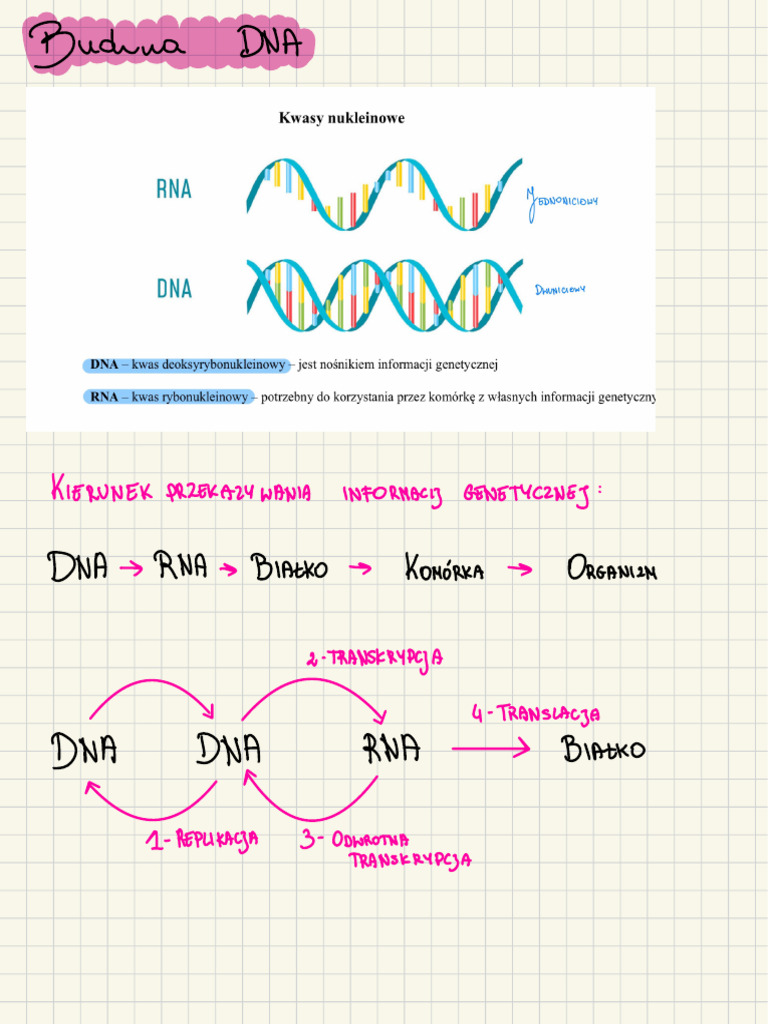 Budowa DNA
Kwasy nukleinowe
RNA
Jednoniciowy
DNA
Dwuniciowy
DNA – kwas deoksyrybonukleinowy – jest nośnikiem informacji genetycznej
RNA – kwas rybonukleinowy – potrzebny do korzystania przez komórkę z własnych informacji genetyczny
KIERUNEK PRZEKAZYWANIA INFORMACIJ GENETYCZNEJ:
DNA → RNA → BIAŁKO → KOMÓRKA → ORGANIZM
2-TRANSKRYPCJA
4-TRANSLACJA
DNA DNA RNA → BIAŁKO
1-REPLIKACJA 3-ODWROTNA
TRANSKRYPCJA